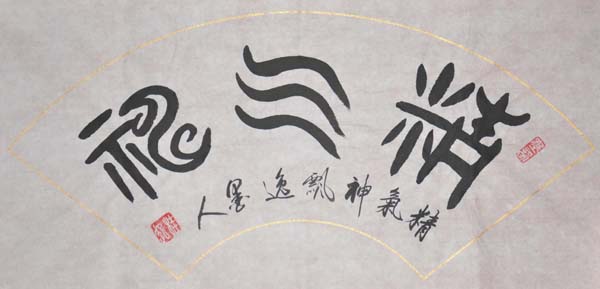 精气神
精氣神飄逸墨人